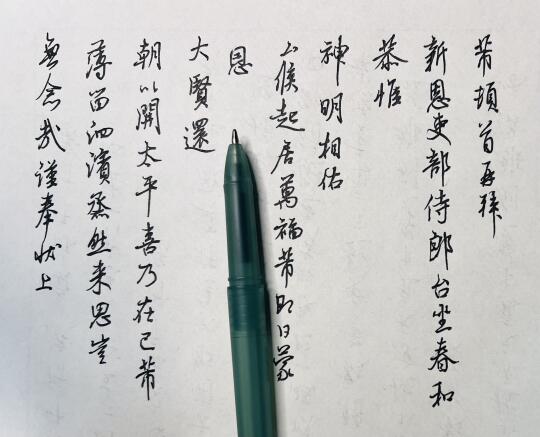 芾頓首再拜
新恩吏部侍郎台坐春和
恭惟
神明相佑
台候起居萬福芾即日蒙
恩
大賢還
朝以開太平喜乃在已芾
薄留泗濱蒸然来思豈
無念哉謹奉狀上